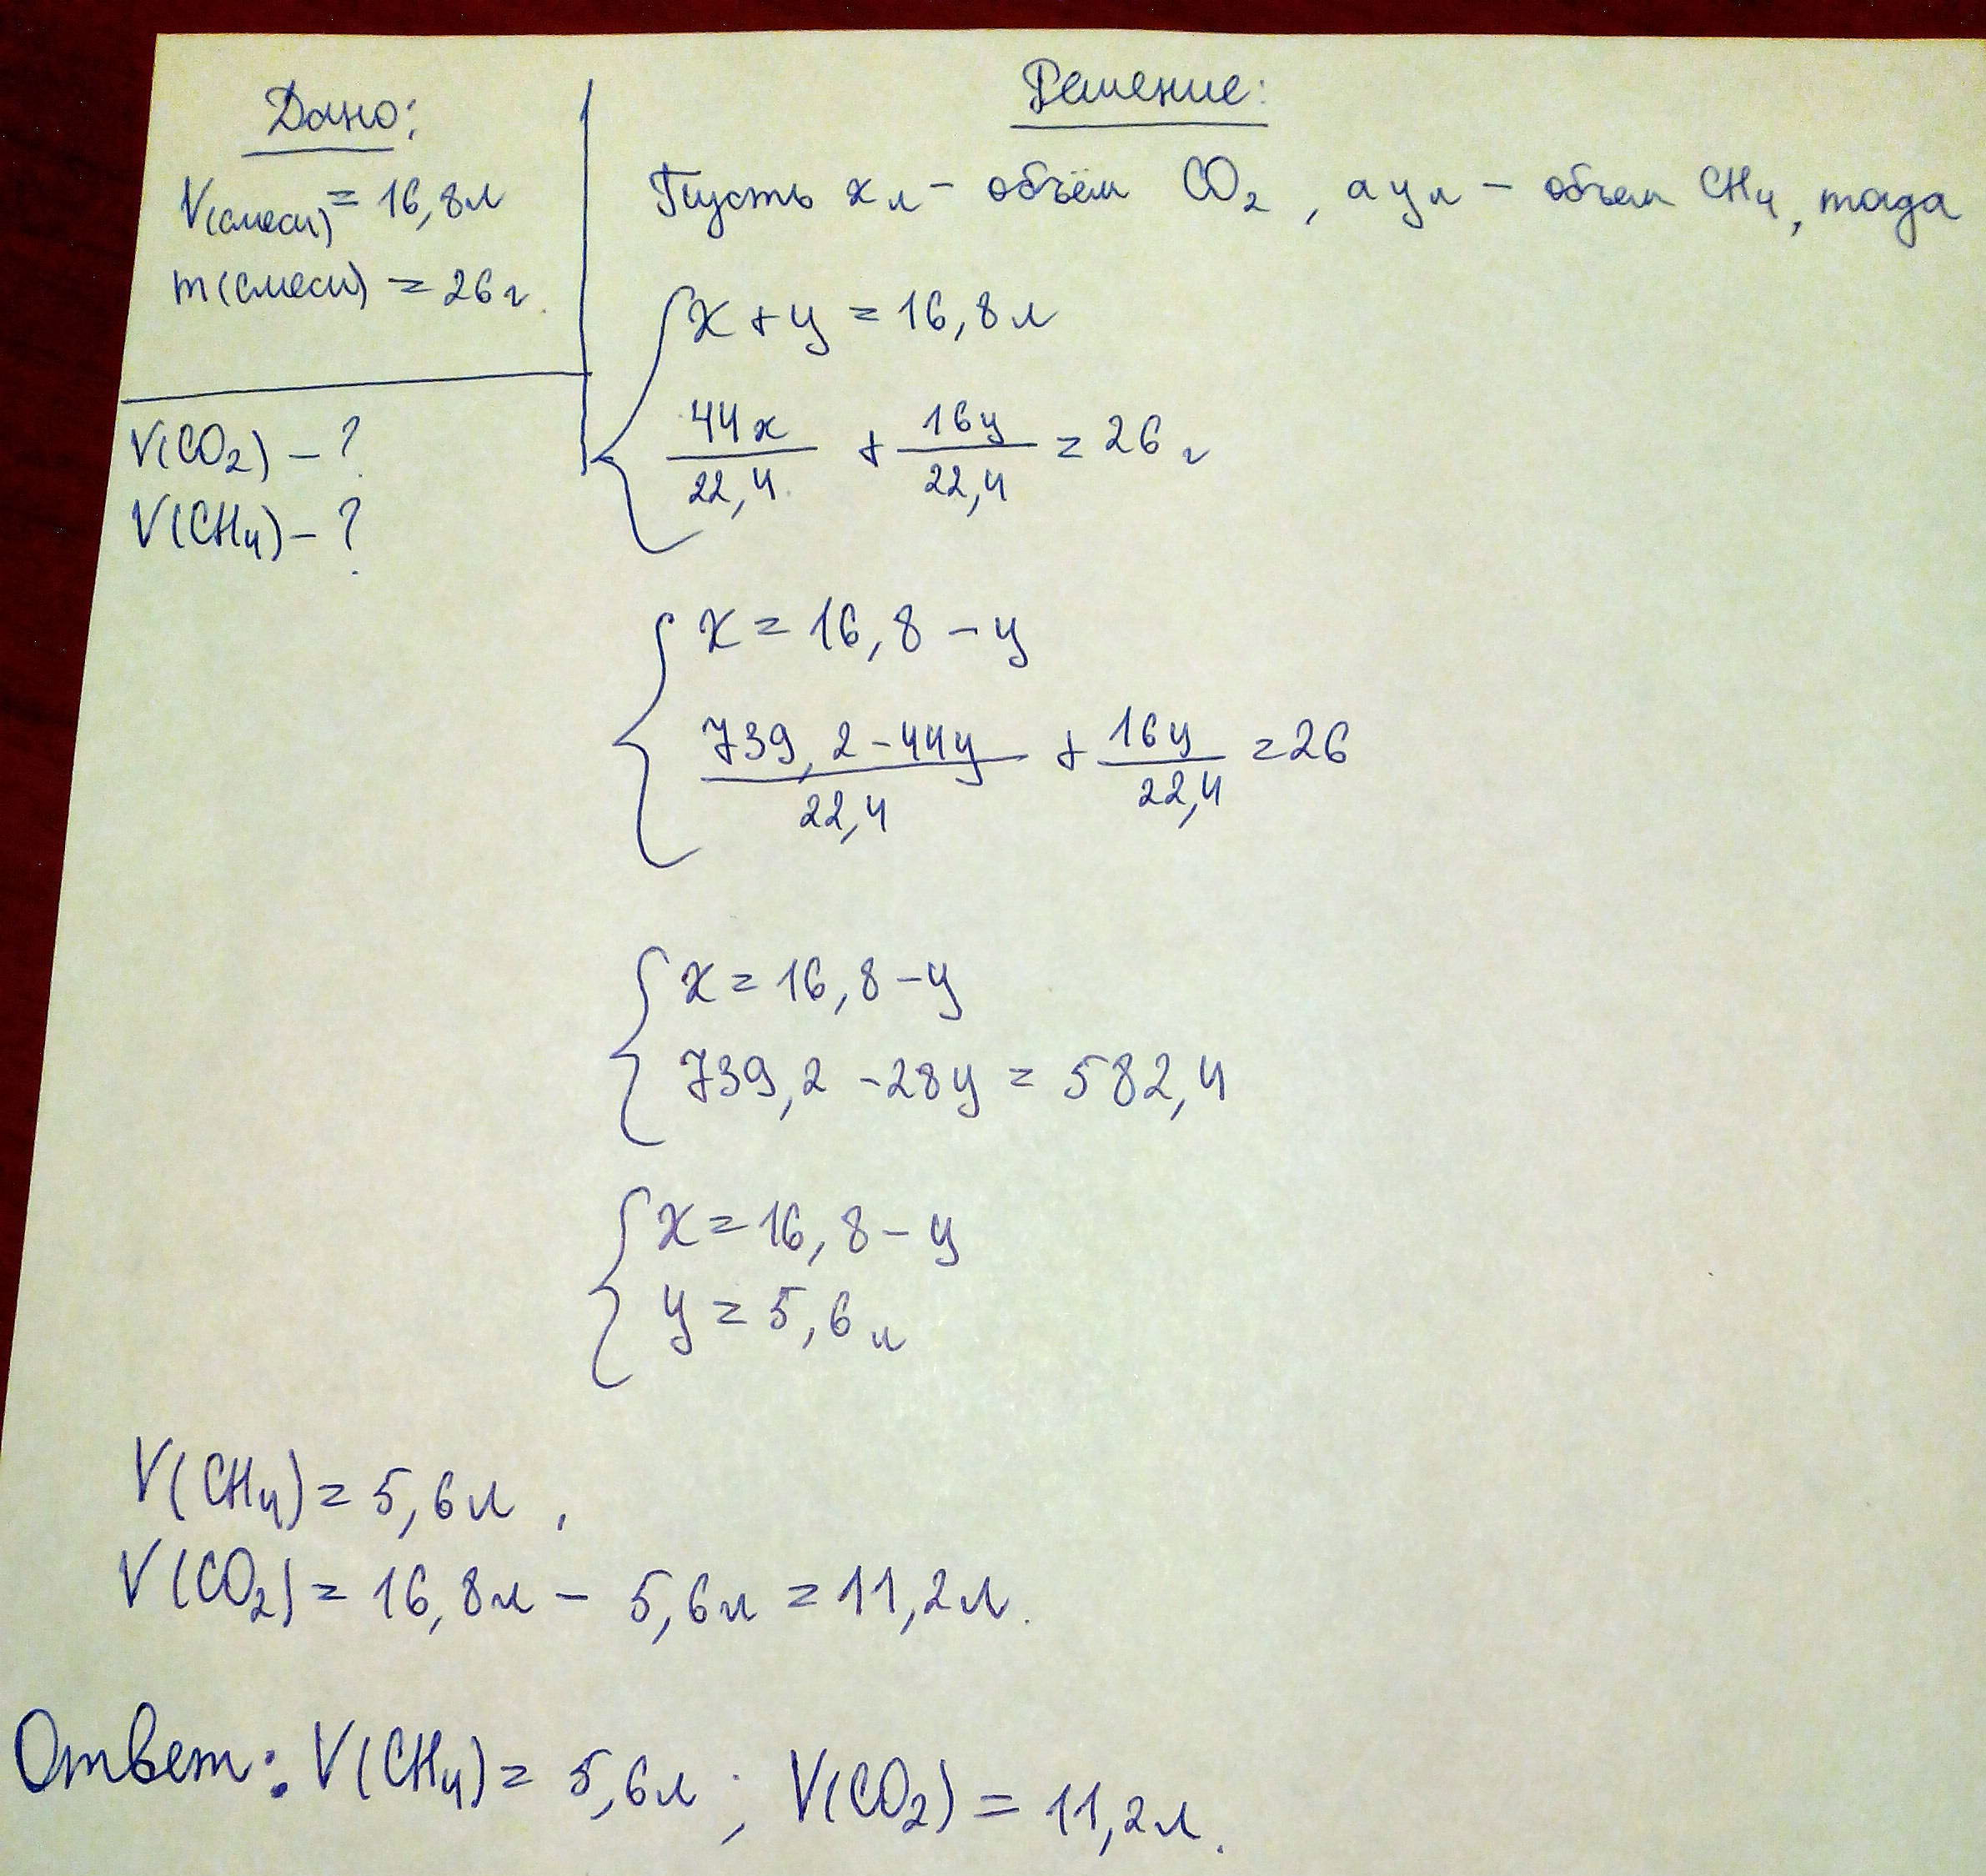 Дано:
V(смеси) = 16,8 л
m(смеси) = 26 г.
V(CO₂) - ?
V(CH₄) - ?
Решение:
Пусть x л - объём CO₂, а y л - объем CH₄, тогда
x + y = 16,8 л
44x/22,4 + 16y/22,4 = 26 г
x = 16,8 - y
739,2 - 44y/22,4 + 16y/22,4 = 26
x = 16,8 - y
739,2 - 28y = 582,4
x = 16,8 - y
y = 5,6 л
V(CH₄) = 5,6 л,
V(CO₂) = 16,8 л - 5,6 л = 11,2 л.
Ответ: V(CH₄) = 5,6 л; V(CO₂) = 11,2 л.